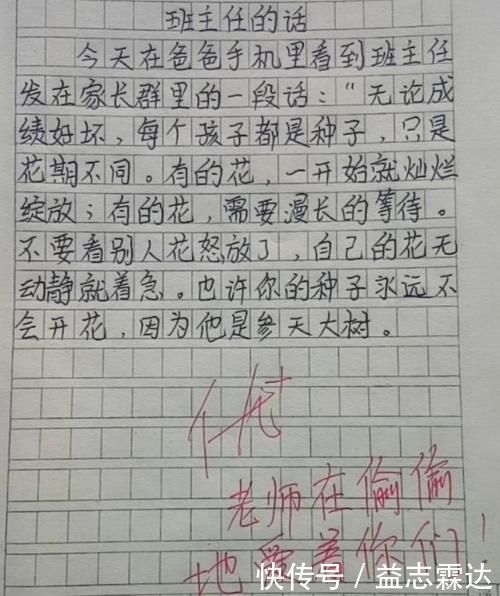 班主任的话
今天在爸爸手机里看到班主任
发在家长群里的一段话：“无论成
绩好坏，每个孩子都是种子，只是
花期不同。有的花，一开始就灿烂
绽放；有的花，需要漫长的等待。
不要看别人花怒放了，自己的花无
动静就着急。也许你的种子永远不
会开花，因为他是参天大树。
优+
老师在偷偷
地爱着你们！
快传号／益志霖达